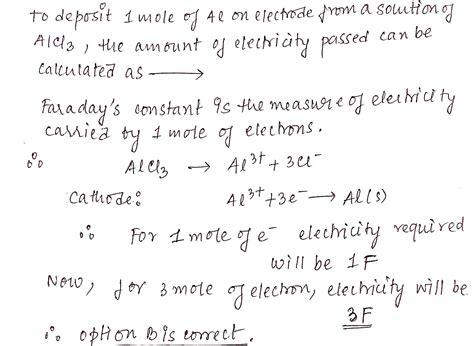 To deposit 1 mole of Al on electrode from a solution of
AlCl3, the amount of electricity passed can be
calculated as ⟶
Faraday's constant is the measure of electricity
carried by 1 mole of electrons.
∴ AlCl3 → Al³⁺ + 3Cl⁻
Cathode: Al³⁺ + 3e⁻ → Al(s)
∴ For 1 mole of e⁻ electricity required
will be 1F
Now, for 3 mole of electron, electricity will be
3F
∴ option B is correct.